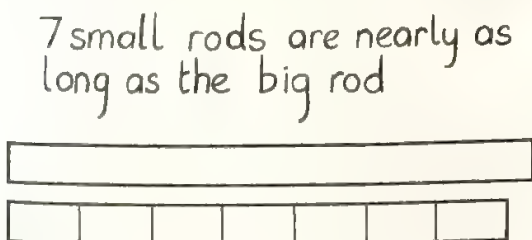 7 small rods are nearly as
long as the big rod